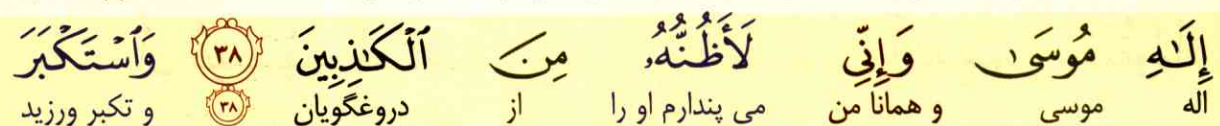 إِلَٰهِ مُوسَىٰ وَإِنِّي لَأَظُنُّهُۥ مِنَ ٱلْكَٰذِبِينَ ٣٨ وَٱسْتَكْبَرَ
اله موسی و همانا من می پندارم او را از دروغگویان ٣٨ و تکبر ورزید